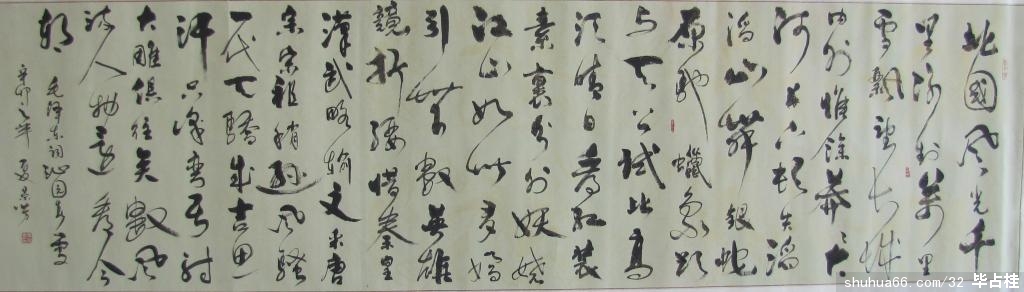 北國风光千
里冰封萬里
雪飘望长城
内外惟餘莽々大
河上下頓失滔
滔山舞銀蛇
原驰蠟象欲
与天公試比高
须晴日看红装
素裹分外妖娆
江山如此多嬌
引無數英雄
競折腰惜秦皇
漢武略输文采唐
宋宗祖稍逊风骚
一代天驕成吉思
汗只识弯弓射
大雕俱往矣數风
流人物还看今
朝
毛泽东词沁园春雪
辛卯之年 夏
shuhua66.com/32 毕占桂